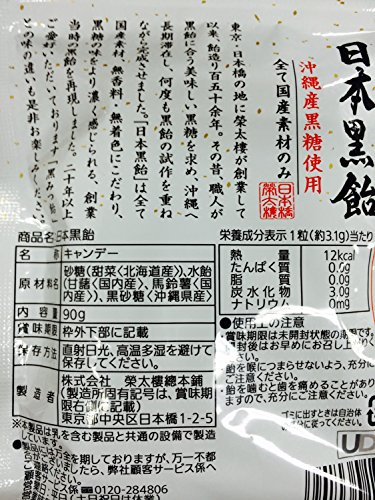 日本黒飴
沖縄産黒糖使用
全て国産素材のみ
日本橋
榮太樓
東京・日本橋の地に榮太樓が創業して
以来、飴造り百五十余年。その昔、職人が
黒飴に合う美味しい黒糖を求め、沖縄へ
長期滞在し、何度も黒飴の試作を重ね
ながら完成させました。「日本黒飴」は全て
国産素材、無香料・無着色にこだわり、
黒糖の味をより濃く感じられる、創業
当時の黒飴を再現しました。二十年以上
ご愛好いただいております「黒みつ飴」
との味の違いも是非お楽しみください。
商品名 日本黒飴
名称 キャンデー
原材料名 砂糖(甜菜〈北海道産〉)、水飴
(甘藷〈国内産〉、馬鈴薯〈国
内産〉)、黒砂糖(沖縄県産)
内容量 90g
賞味期限 枠外下部に記載
保存方法 直射日光、高温多湿を避けて
保存してください。
製造者 株式会社 榮太樓總本鋪
(製造所固有記号は、賞味期
限右側に記載)
東京都中央区日本橋1-2-5
※本製品は乳を含む製品と共通の設備で製造
栄養成分表示 1粒(約3.1g)当たり
熱量 12kcal
たんぱく質 0.0g
脂質 0.0g
炭水化物 3.0g
ナトリウム 0mg
●使用上の注意
賞味期限は未開封状態の期限です。
開封後はお早めにお召し上がり
ください。
・飴を喉につまらせないよう、
・飴を噛むと歯を痛めること
ゴミ出すときは自治体
UD
全を期しておりますが、万一不都
ましたら、弊社顧客サービス係へ
客サービス係
0120-284806
(土日祝日は休業)